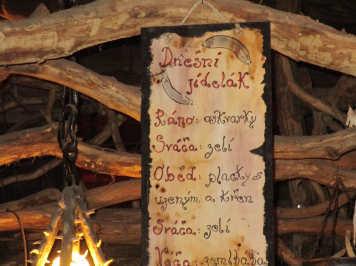 Dnešní
jídelák
Ráno: oškvarky
Sváča: zelí
Oběd: placky s
uzeným a křen
Sváča: zelí